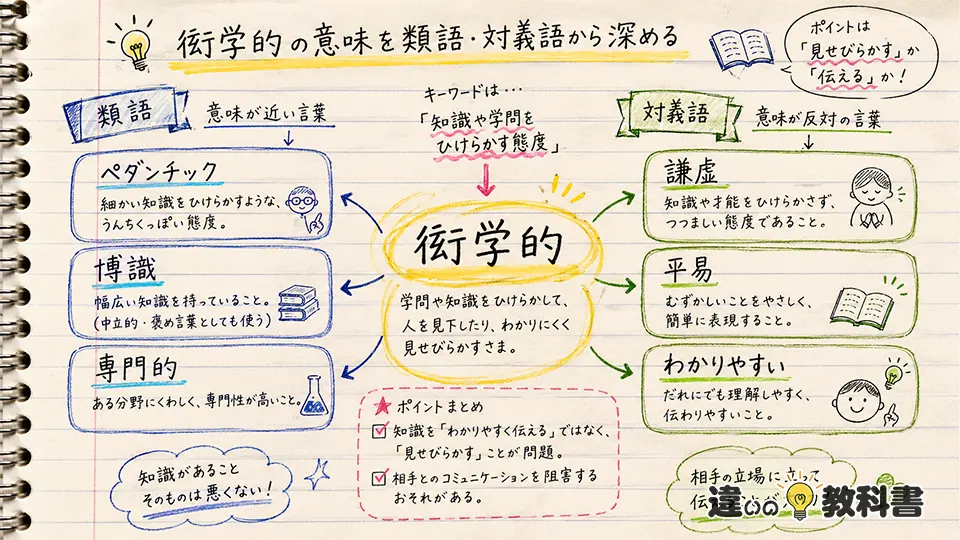 衒学的の意味を類語・対義語から深める
ポイントは
「見せびらかす」か
「伝える」か！
類語
意味が近い言葉
ペダンチック
細かい知識をひけらかすような、
うんちくっぽい態度。
博識
幅広い知識を持っていること。
(中立的・褒め言葉としても使う)
専門的
ある分野にくわしく、専門性が高いこと。
知識があること
そのものは悪くない！
キーワードは…
「知識や学問を
ひけらかす態度」
衒学的
学問や知識をひけらかして、
人を見下したり、わかりにくく
見せびらかすさま。
ポイントまとめ
知識を「わかりやすく伝える」ではなく、
「見せびらかす」ことが問題。
相手とのコミュニケーションを阻害する
おそれがある。
対義語
意味が反対の言葉
謙虚
知識や才能をひけらかさず、
つつましい態度であること。
平易
むずかしいことをやさしく、
簡単に表現すること。
わかりやすい
だれにでも理解しやすく、
伝わりやすいこと。
相手の立場に立って
伝
違いの教科書